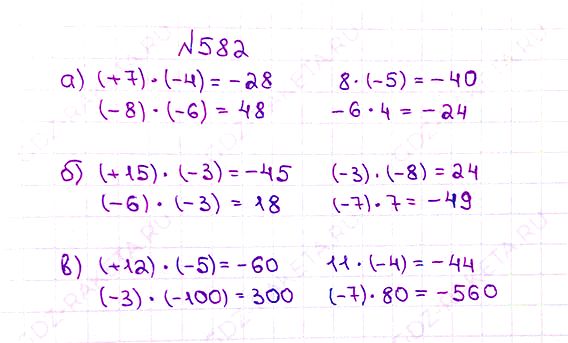 №582
а) (+7) · (-4) = -28 8 · (-5) = -40
(-8) · (-6) = 48 -6 · 4 = -24
б) (+15) · (-3) = -45 (-3) · (-8) = 24
(-6) · (-3) = 18 (-7) · 7 = -49
в) (+12) · (-5) = -60 11 · (-4) = -44
(-3) · (-100) = 300 (-7) · 80 = -560